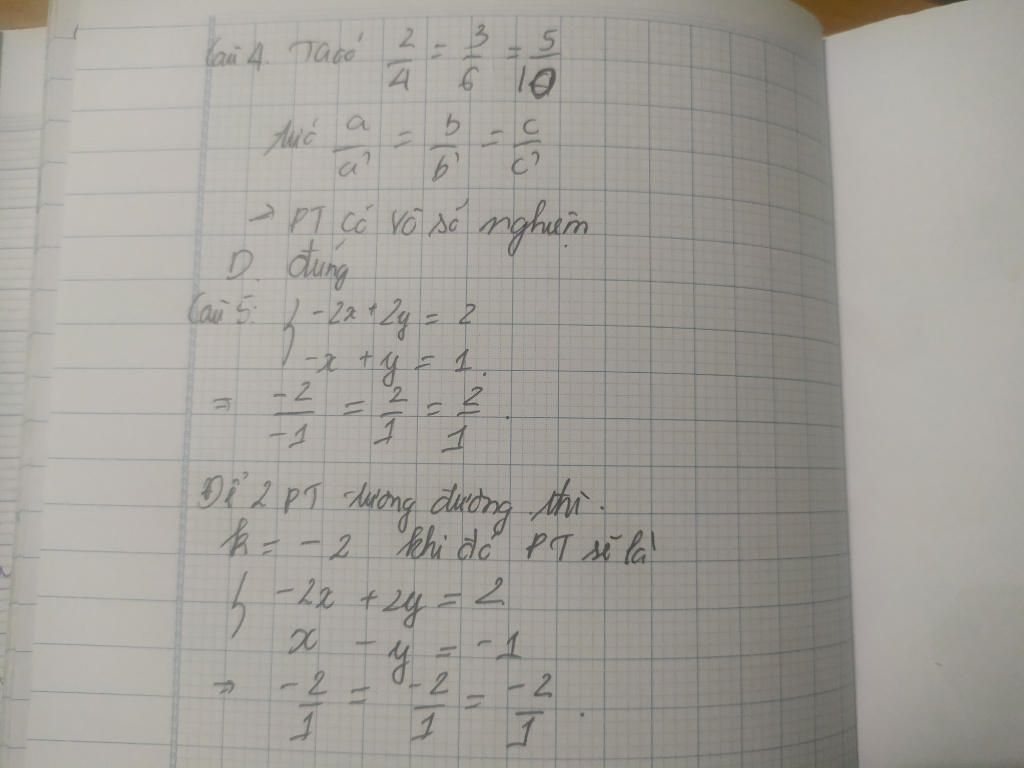 Câu 4. Ta có 2/4 = 3/6 = 5/10
tức a/a' = b/b' = c/c'
→ PT có vô số nghiệm
D. đúng
Câu 5: { -2x + 2y = 2
-x + y = 1.
⇒ -2/-1 = 2/1 = 2/1.
Để 2 PT tương đương thì.
k = -2 khi đó PT sẽ là
{ -2x + 2y = 2
x - y = -1
→ -2/1 = -2/1 = -2/1.